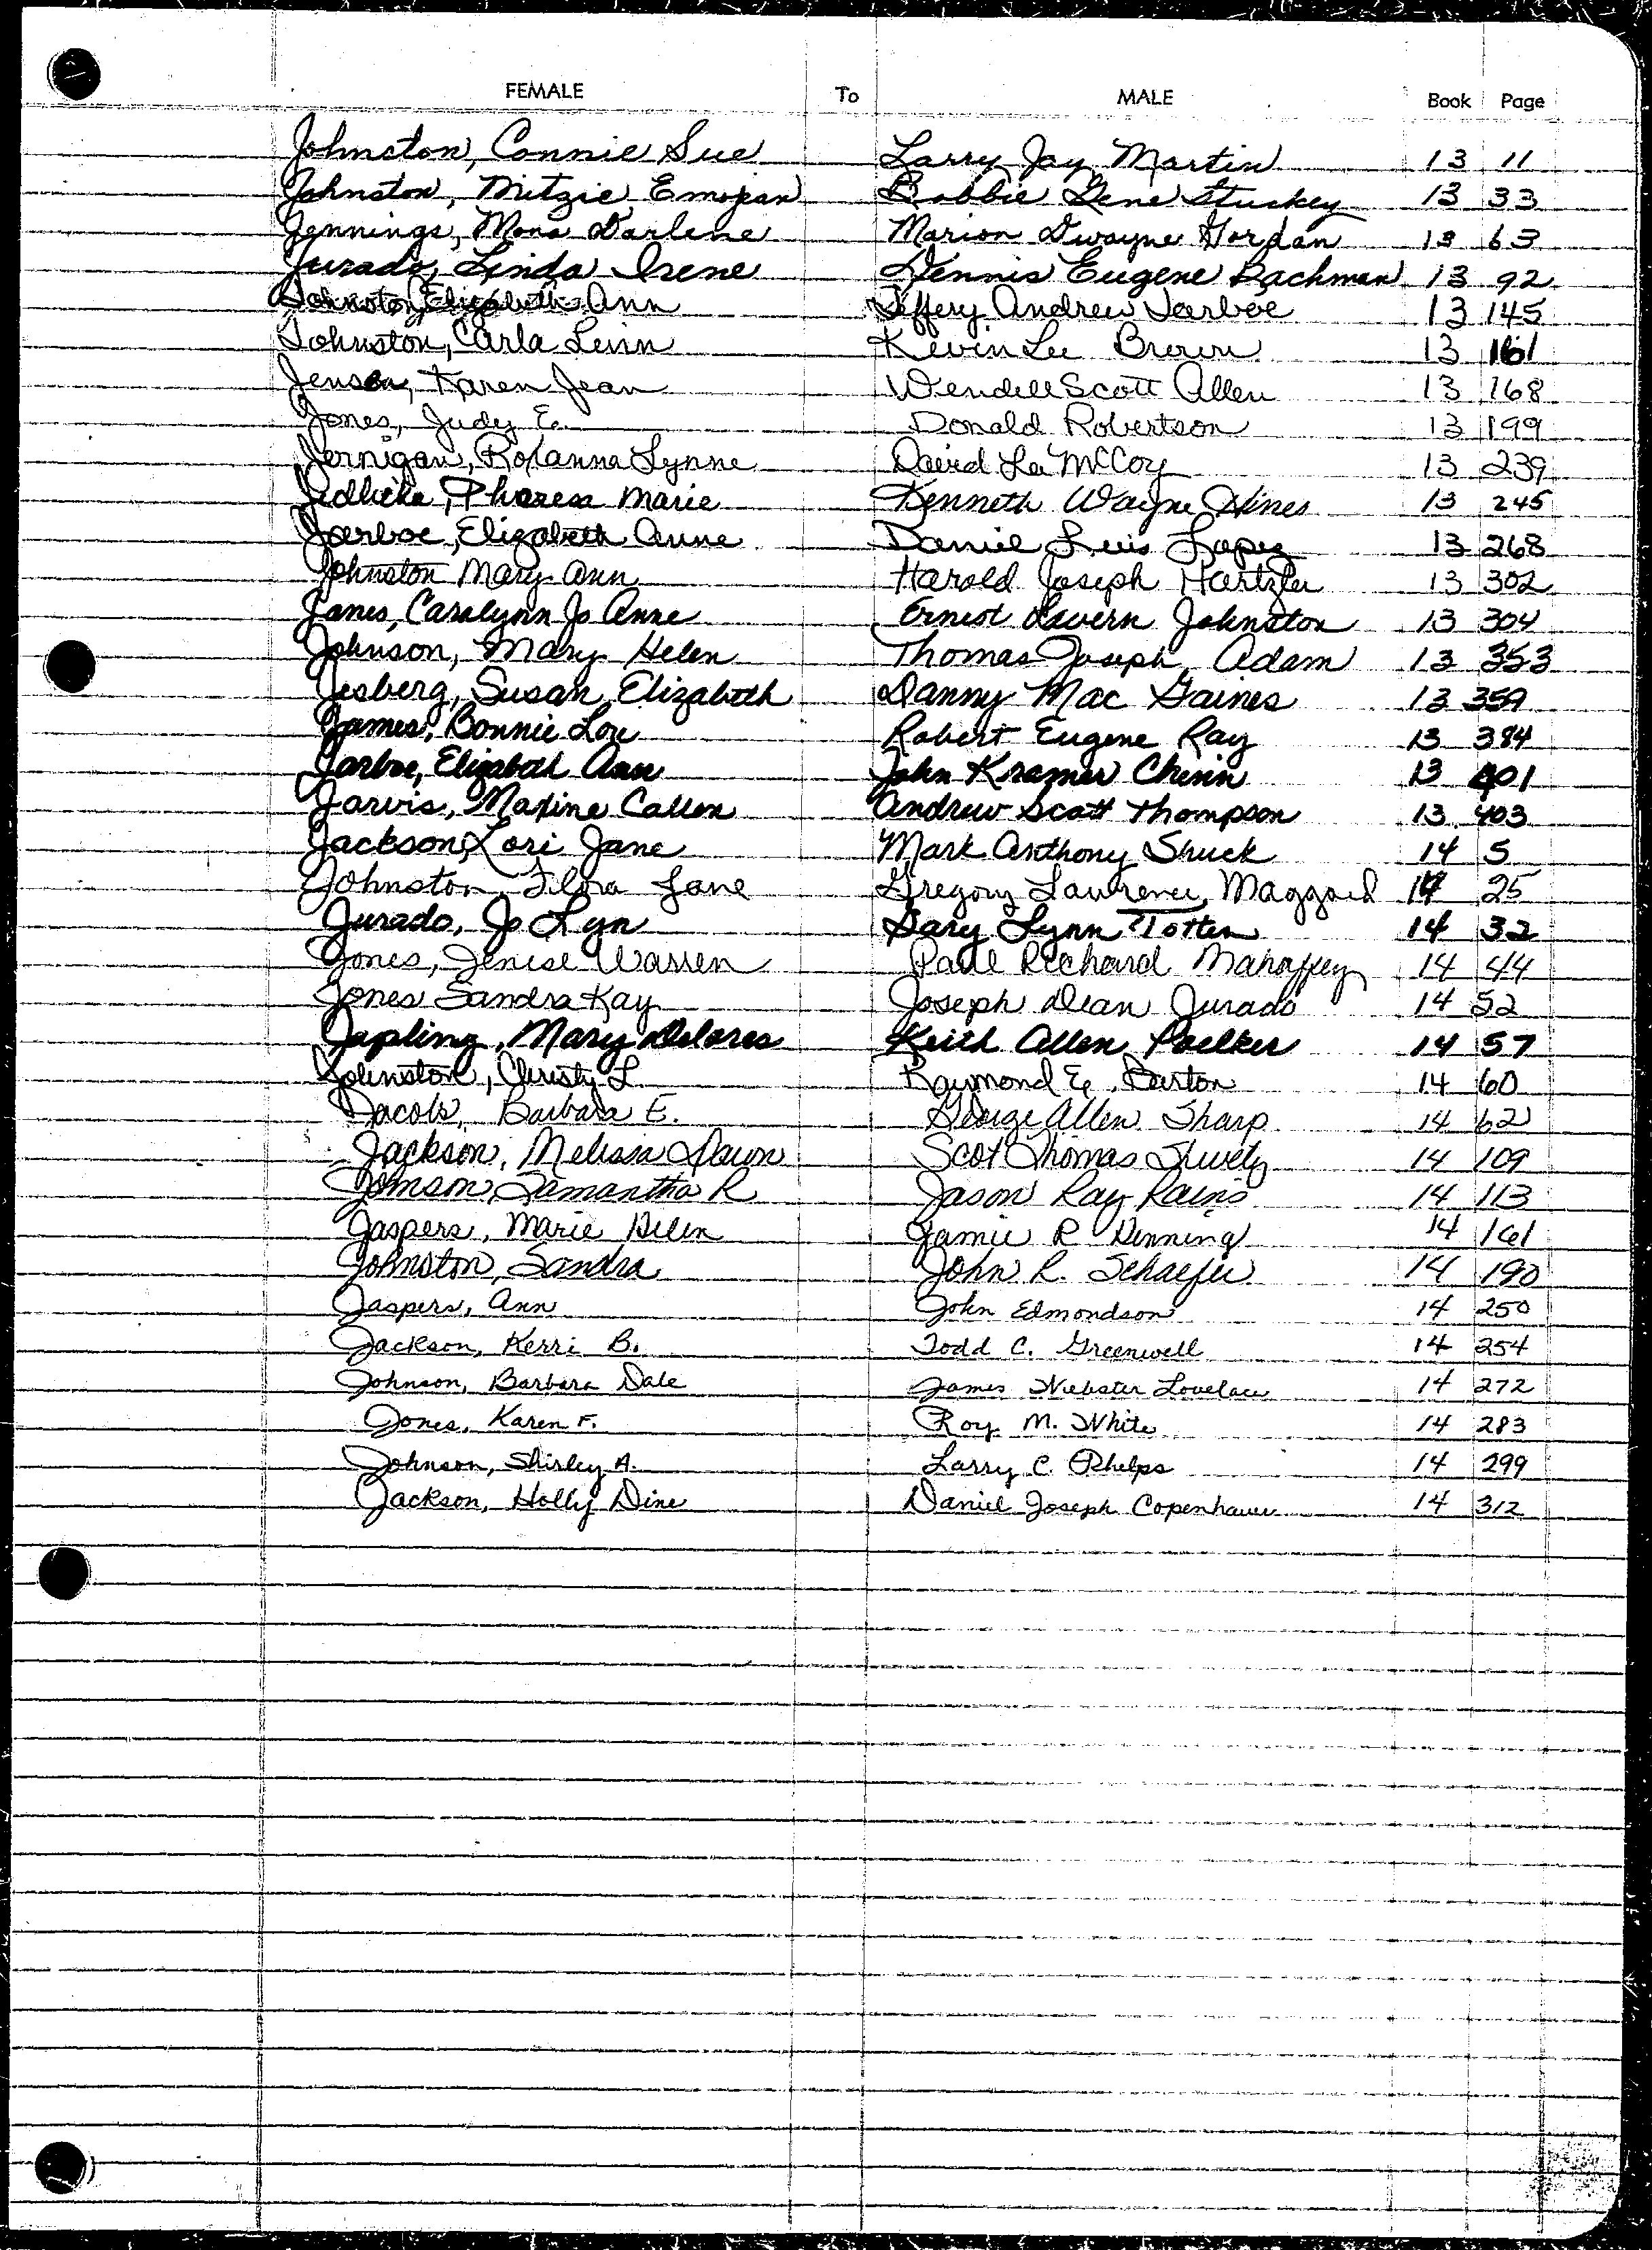 FEMALE To MALE Book Page
Johnston, Connie Sue Larry Jay Martin 13 11
Johnston, Mitzie Emojean Bobbie Gene Stuckey 13 33
Jennings, Mona Darlene Marion Dwayne Gordan 13 63
Jurado, Linda Irene Dennis Eugene Bachman 13 92
Johnston, Elizabeth Ann Jeffery Andrew Jarboe 13 145
Johnston, Carla Linn Kevin Lee Brown 13 161
Jensen, Karen Jean Wendell Scott Allen 13 168
Jones, Judy E. Donald Robertson 13 199
Jernigan, Roxanna Lynne David Lee McCoy 13 239
Marie Kenneth Wayne Hines 13 245
Jarboe, Elizabeth Anne Daniel Luis Lopez 13 268
Johnston Mary Ann Harold Joseph Hartzler 13 302
Janes, Caralynn Jo Anne Ernest Lavern Johnston 13 304
Johnson, Mary Helen Thomas Joseph Adam 13 353
Jesberg, Susan Elizabeth Danny Mac Gaines 13 359
James, Bonnie Lou Robert Eugene Ray 13 384
Jarboe, Elizabeth Ann John Kramer Chinn 13 401
Jarvis, Maxine Callen Andrew Scott Thompson 13 403
Jackson, Lori Jane Mark Anthony Shuck 14 5
Johnston, Flora Jane Gregory Lawrence Maggard 14 25
Jurado, Jo Lyn Gary Lynn Totten 14 32
Jones, Jenise Warren Paul Richard Mahaffey 14 44
Jones Sandra Kay Joseph Dean Jurado 14 52
Japling, Mary Delores Keith Allen Poelker 14 57
Johnston, Christy L. Raymond E. Barton 14 60
Jacobs, Barbara E. George Allen Sharp 14 62
Jackson, Melissa Dawn Scot Thomas 14 109
Johnson, Samantha R Jason Ray Rains 14 113
Jaspers, Marie Helen Jamie R Henning 14 161
Johnston, Sandra John R. Schaefer 14 190
Jaspers, Ann John Edmondson 14 250
Jackson, Kerri B. Todd C. Greenwell 14 254
Johnson, Barbara Dale James Webster Lovelace 14 272
Jones, Karen F. Roy M. White 14 283
Johnson, Shirley A. Larry C. Phelps 14 299
Jackson, Holly Dine Daniel Joseph Copenhaver 14 312